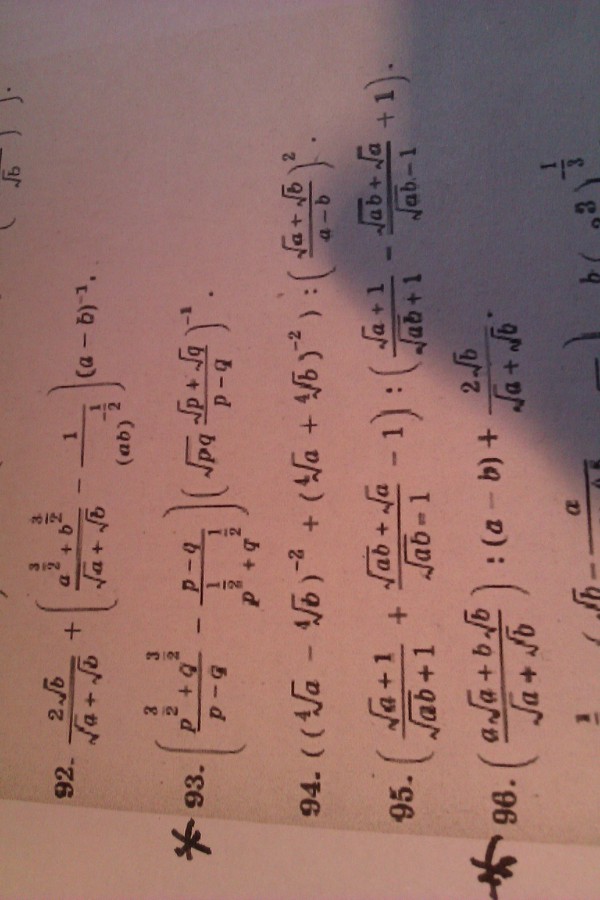 √b ) ) .
92. 2√b/(√a + √b) + ( (a^(3/2) + b^(3/2))/(√a + √b) − 1/(ab)^(−1/2) ) (a − b)^(−1).
* 93. ( (p^(3/2) + q^(3/2))/(p − q) − (p − q)/(p^(1/2) + q^(1/2)) ) ( √pq (√p + √q)/(p − q) )^(−1) .
94. ((∜a − ∜b)^(−2) + (∜a + ∜b)^(−2)) : ( (√a + √b)/(a − b) )^2 .
95. ( (√a + 1)/(√ab + 1) + (√ab + √a)/(√ab − 1) − 1 ) : ( (√a + 1)/(√ab + 1) − (√ab + √a)/(√ab − 1) + 1 ) .
* 96. ( (a√a + b√b)/(√a + √b) ) : (a − b) + 2√b/(√a + √b) .